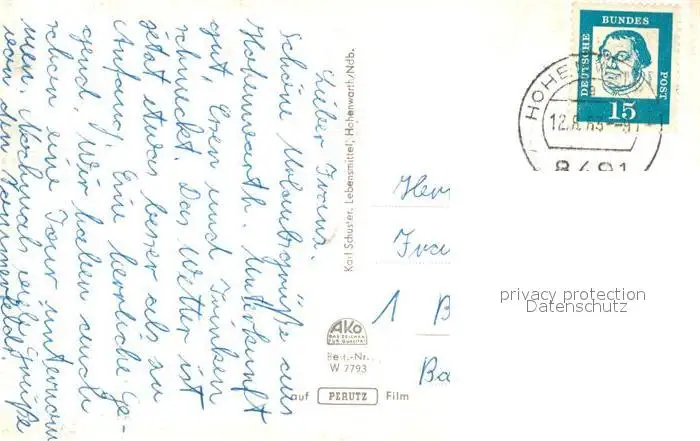 Lieber Franz.
Schöne Urlaubsgrüße aus
Hohenwarth. Unterkunft
gut, Essen und Trinken
schmeckt. Das Wetter ist
jetzt etwas besser als zu
Anfang. Eine herrliche Ge-
gend. Wir haben auch
schon eine Tour unternom
men. Nochmals viele Grüße
von den
Karl Schuster, Lebensmittel, Hohenwarth/Ndb.
DEUTSCHE
BUNDES
POST
15
HOHEN
12.8.63
8491
Herr
Fra
1 B
Ba
AKO
DAS ZEICHEN
FÜR QUALITÄT
Best.-Nr.
W 7793
auf PERUTZ Film
privacy protection
Datenschutz